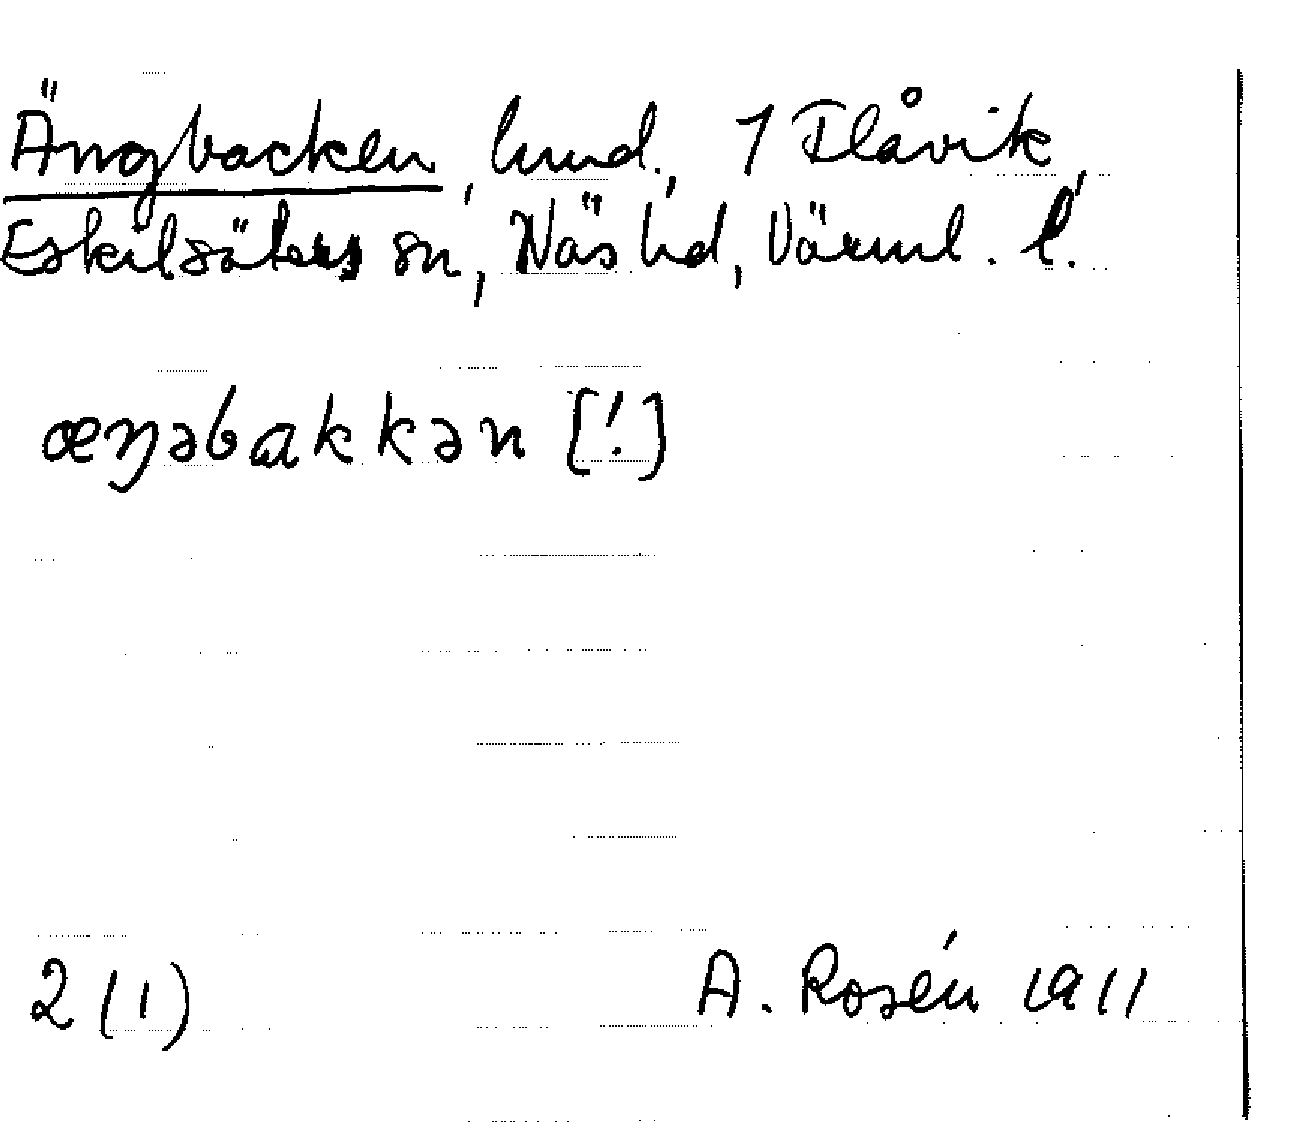 Ängbacken, hmd., 1 Flåvik
Eskilsäters sn, Näs hd, Värml. l.
æŋəbakkən [!]
2 (1) A. Rosén 1911